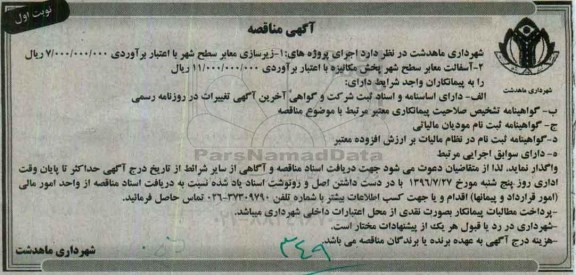 نوبت اول
آگهی مناقصه
شهرداری ماهدشت
شهرداری ماهدشت در نظر دارد اجرای پروژه های:۱-زیرسازی معابر سطح شهر با اعتبار برآوردی ۷/۰۰۰/۰۰۰/۰۰۰ ریال
۲-آسفالت معابر سطح شهر پخش مکانیزه با اعتبار برآوردی ۱۱/۰۰۰/۰۰۰/۰۰۰ ریال
را به پیمانکاران واجد شرایط دارای:
الف- دارای اساسنامه و اسناد ثبت شرکت و گواهی آخرین آگهی تغییرات در روزنامه رسمی
ب- گواهینامه تشخیص صلاحیت پیمانکاری معتبر مرتبط با موضوع مناقصه
ج- گواهینامه ثبت نام مودیان مالیاتی
د-گواهینامه ثبت نام در نظام مالیات بر ارزش افزوده معتبر
ه- دارای سوابق اجرایی مرتبط
واگذار نماید. لذا از متقاضیان دعوت می شود جهت دریافت اسناد مناقصه و آگاهی از سایر شرایط از تاریخ درج آگهی حداکثر تا پایان وقت
اداری روز پنج شنبه مورخ ۱۳۹۶/۷/۲۷ با در دست داشتن اصل و رونوشت اسناد یاد شده نسبت به دریافت اسناد مناقصه از واحد امور مالی
(امور قرارداد و پیمانها) اقدام و یا جهت کسب اطلاعات بیشتر با شماره تلفن ۳۷۳۰۹۷۹۰-۰۲۶ تماس حاصل فرمائید.
-پرداخت مطالبات پیمانکار بصورت نقدی از محل اعتبارات داخلی شهرداری میباشد.
-شهرداری در رد یا قبول هر یک از پیشنهادات مختار است.
-هزینه درج آگهی به عهده برنده یا برندگان مناقصه می باشد.
شهرداری ماهدشت
۳۴۹
ParsNamadData